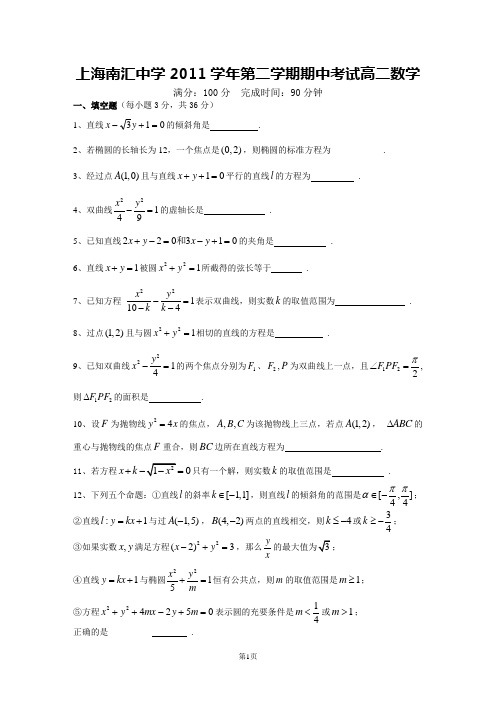 上海南汇中学2011学年第二学期期中考试高二数学
满分：100分　完成时间：90分钟
一、填空题（每小题3分，共36分）
1、直线x－√3y＋1＝0的倾斜角是　　　　.
2、若椭圆的长轴长为12，一个焦点是(0,2)，则椭圆的标准方程为　　　　.
3、经过点A(1,0)且与直线x＋y＋1＝0平行的直线l的方程为　　　　.
4、双曲线x²/4－y²/9＝1的虚轴长是　　　　.
5、已知直线2x＋y－2＝0和3x－y＋1＝0的夹角是　　　　.
6、直线x＋y＝1被圆x²＋y²＝1所截得的弦长等于　　　　.
7、已知方程 x²/(10－k)－y²/(k－4)＝1表示双曲线，则实数k的取值范围为　　　　.
8、过点(1,2)且与圆x²＋y²＝1相切的直线的方程是　　　　.
9、已知双曲线x²－y²/4＝1的两个焦点分别为F₁、F₂,P为双曲线上一点，且∠F₁PF₂＝π/2,
则ΔF₁PF₂的面积是　　　　.
10、设F为抛物线y²＝4x的焦点，A,B,C为该抛物线上三点，若点A(1,2)，ΔABC的
重心与抛物线的焦点F重合，则BC边所在直线方程为　　　　.
11、若方程x＋k－√(1－x²)＝0只有一个解，则实数k的取值范围是　　　　.
12、下列五个命题：①直线l的斜率k∈[－1,1]，则直线l的倾斜角的范围是α∈[－π/4,π/4]；
②直线l:y＝kx＋1与过A(－1,5)，B(4,－2)两点的直线相交，则k≤－4或k≥－3/4；
③如果实数x,y满足方程(x－2)²＋y²＝3，那么y/x的最大值为√3；
④直线y＝kx＋1与椭圆x²/5＋y²/m＝1恒有公共点，则m的取值范围是m≥1；
⑤方程x²＋y²＋4mx－2y＋5m＝0表示圆的充要条件是m＜1/4或m＞1；
正确的是　　　　.
第1页